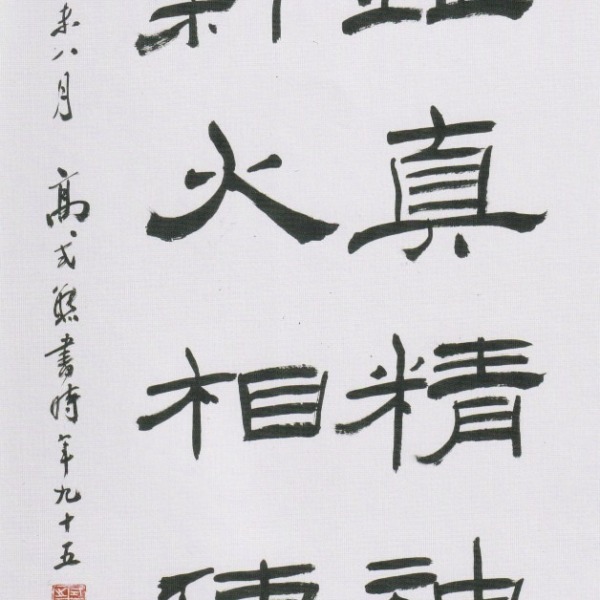 真精神
火相傳
未八月 高式熊書時年九十五